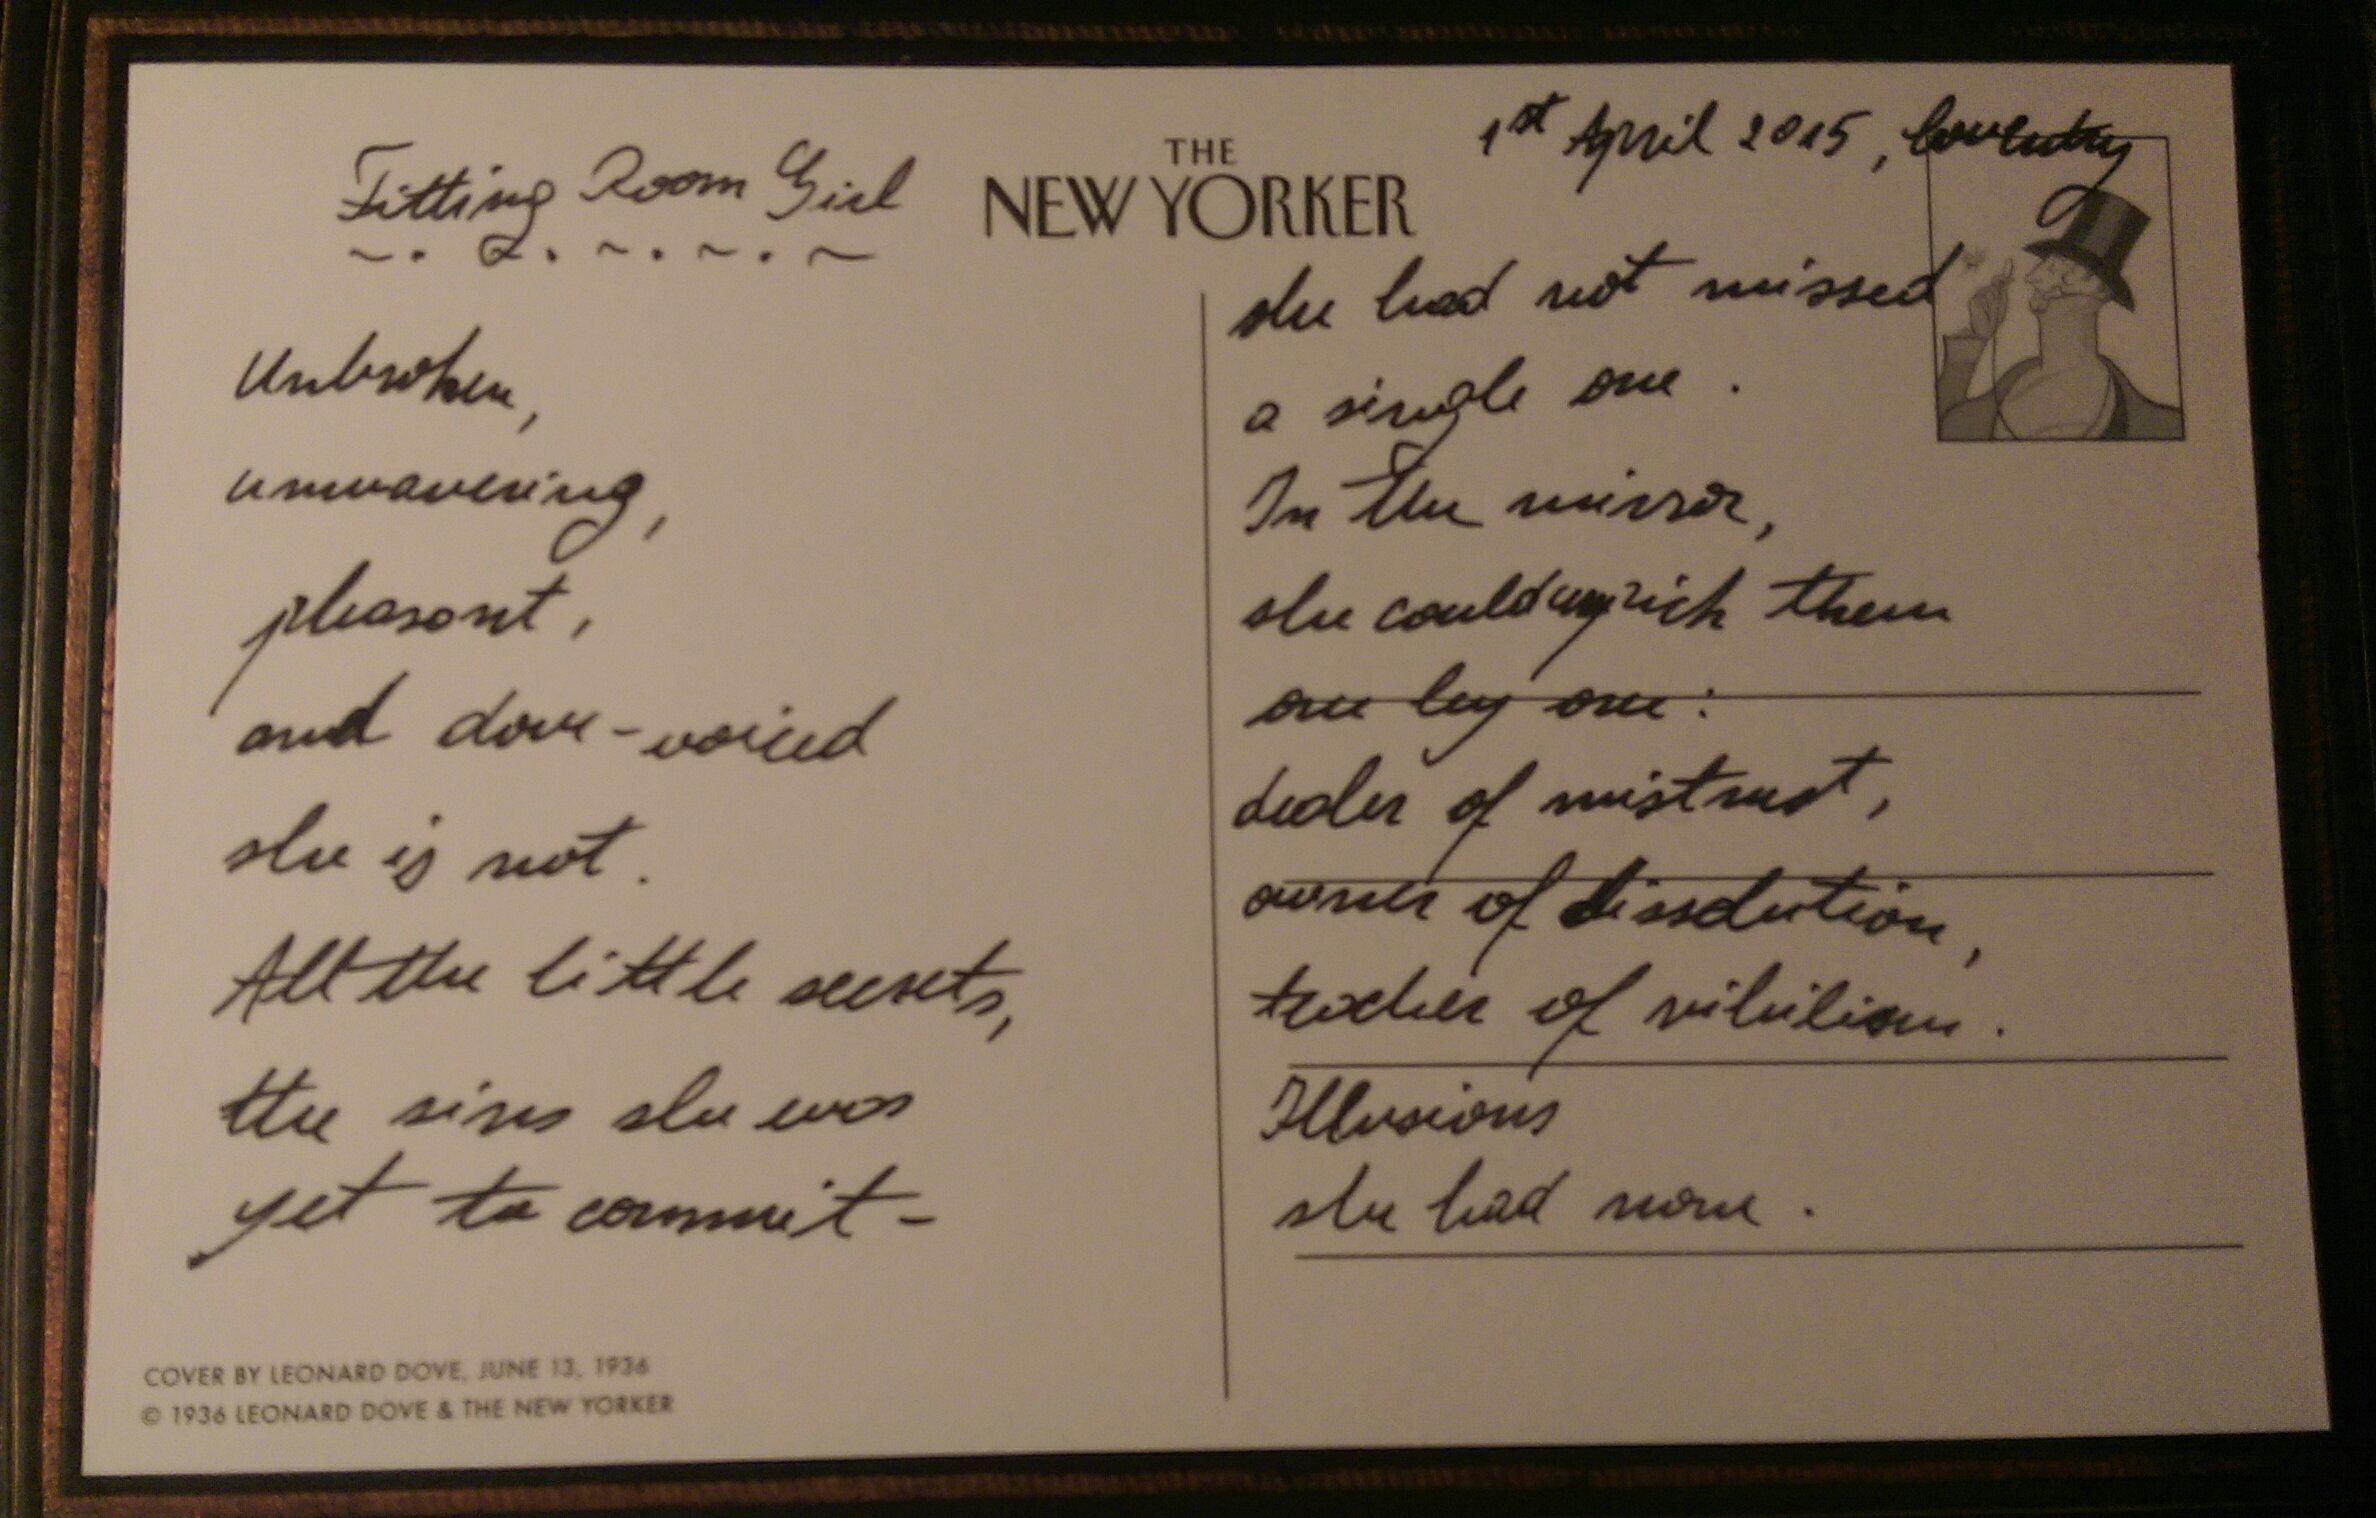 Fitting Room Girl
THE
NEW YORKER
1st April 2015, Coventry
Unbroken,
unwavering,
pleasant,
and dove-voiced
she is not.
All the little secrets,
the sins she was
yet to commit -
she had not missed
a single one.
In the mirror,
she could them
one by one:
dealer of mistrust,
owner of dissolution,
teacher of nihilism.
Illusions
she had none.
COVER BY LEONARD DOVE, JUNE 13, 1936
© 1936 LEONARD DOVE & THE NEW YORKER